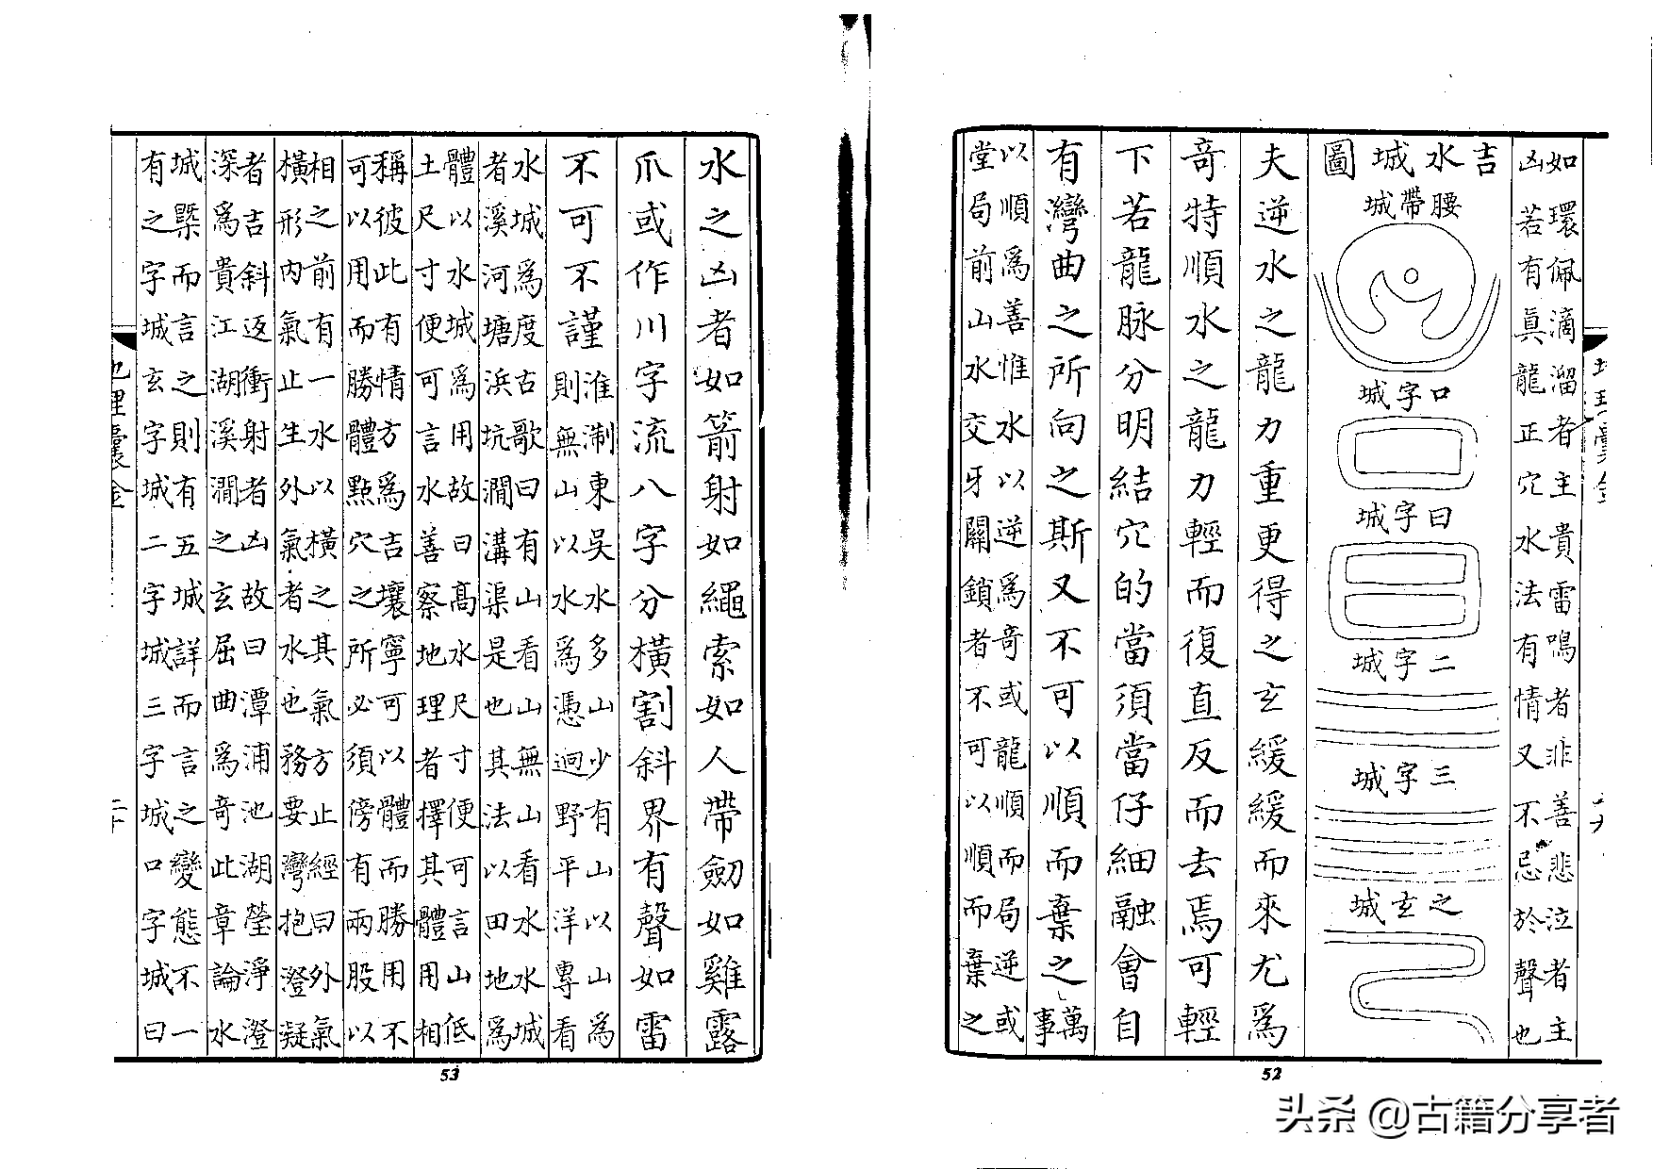 如環佩滴溜者主貴雷鳴者非善悲泣者主
凶若有眞龍正穴水法有情又不忌於聲也
吉水城圖
腰帶城
口字城
曰字城
二字城
三字城
之玄城
夫逆水之龍力重更得之玄緩緩而來尤爲
奇特順水之龍力輕而復直反而去焉可輕
下若龍脉分明結穴的當須當仔細融會自
有灣曲之所向之斯又不可以順而棄之萬
事
以順爲善惟水以逆爲奇或龍順而局逆或
堂局前山水交牙關鎖者不可以順而棄之
52
水之凶者如箭射如繩索如人帶劒如雞露
爪或作川字流八字分橫割斜界有聲如雷
不可不謹
淮淛東吳水多山少有山以山爲
則無山以水爲憑迥野平洋專看
水城爲度古歌曰有山看山無山看水水城
者溪河塘浜坑澗溝渠是也其法以田地爲
體以水城爲用故曰高水尺寸便可言山低
土尺寸便可言水善察地理者擇其體用相
稱彼此有情方爲吉壤寧可以體而勝用不
可以用而勝體點穴之所必須傍有兩股以
相之前有一水以橫之其氣方止經曰外氣
橫形內氣止生外氣者水也務要灣抱澄凝
者吉斜返衝射者凶故曰潭浦池湖瑩淨澄
深爲貴江湖溪澗之玄屈曲爲奇此章論水
城槩而言之則有五城詳而言之變態不一
有之字城玄字城二字城三字城口字城曰
地理囊金
53
头条 @古籍分享者